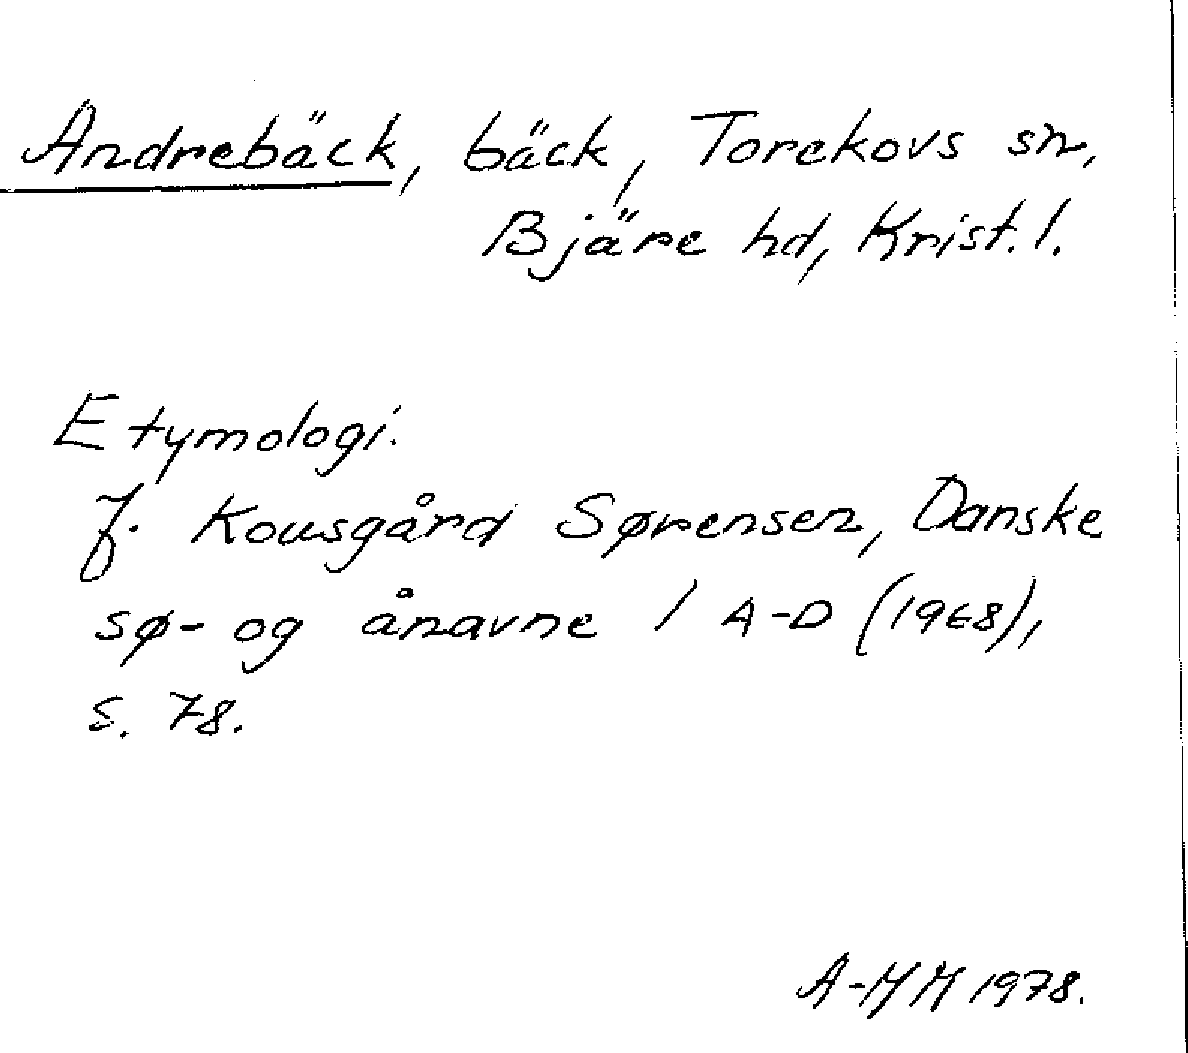 Andrebäck, bäck, Torekovs sn,
Bjäre hd, Krist. l.
Etymologi.
J. Kousgård Sørensen, Danske
sø- og ånavne 1 A-D (1968),
s. 78.
A-MM 1978.